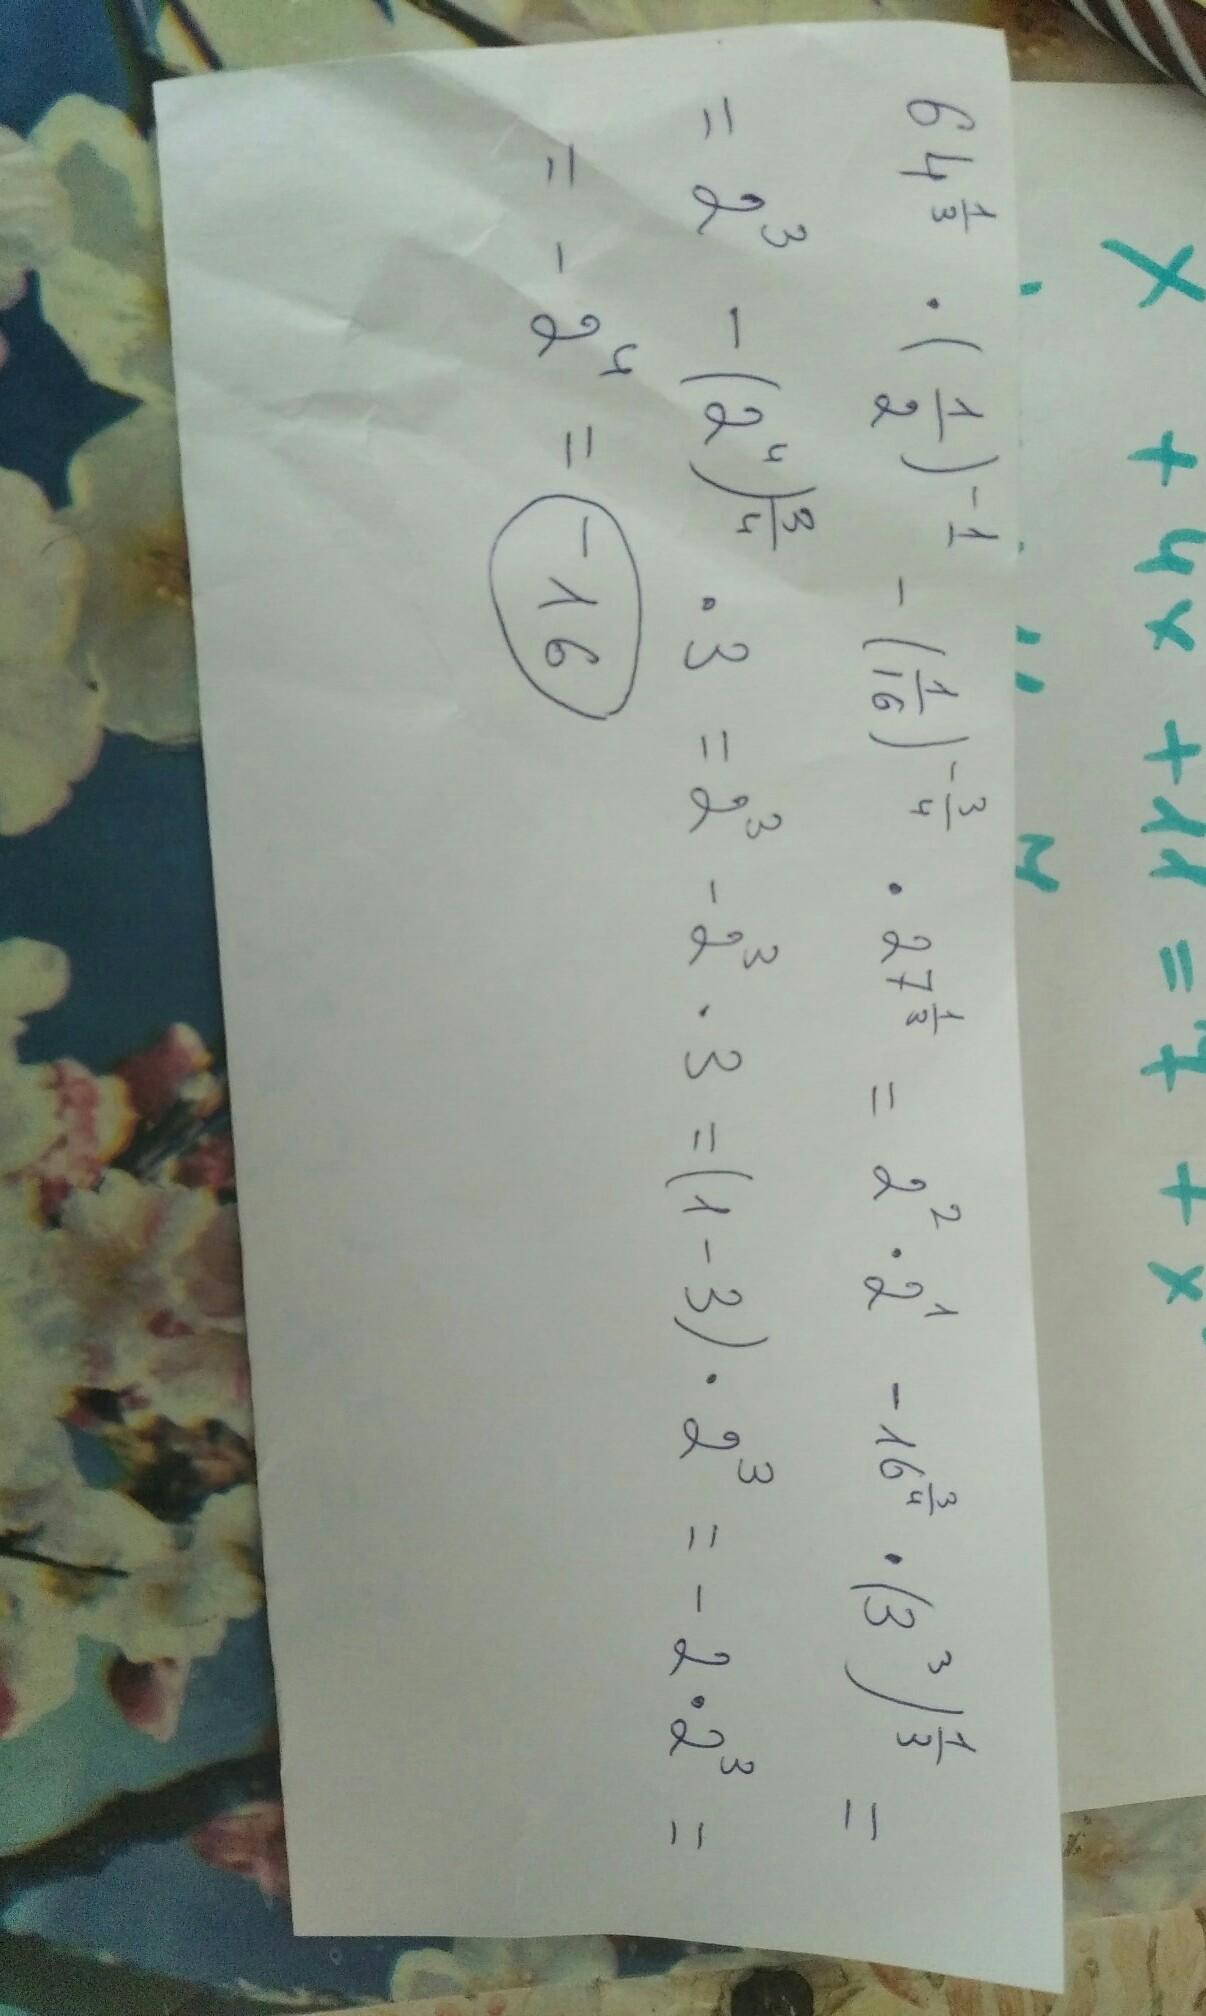 x + 4x + 11 = 7 + x
64^{\frac{1}{3}} · (\frac{1}{2})^{-1} - (\frac{1}{16})^{-\frac{3}{4}} · 27^{\frac{1}{3}} = 2^2 · 2^1 - 16^{\frac{3}{4}} · (3^3)^{\frac{1}{3}} =
= 2^3 - (2^4)^{\frac{3}{4}} · 3 = 2^3 - 2^3 · 3 = (1 - 3) · 2^3 = - 2 · 2^3 =
= - 2^4 = - 16